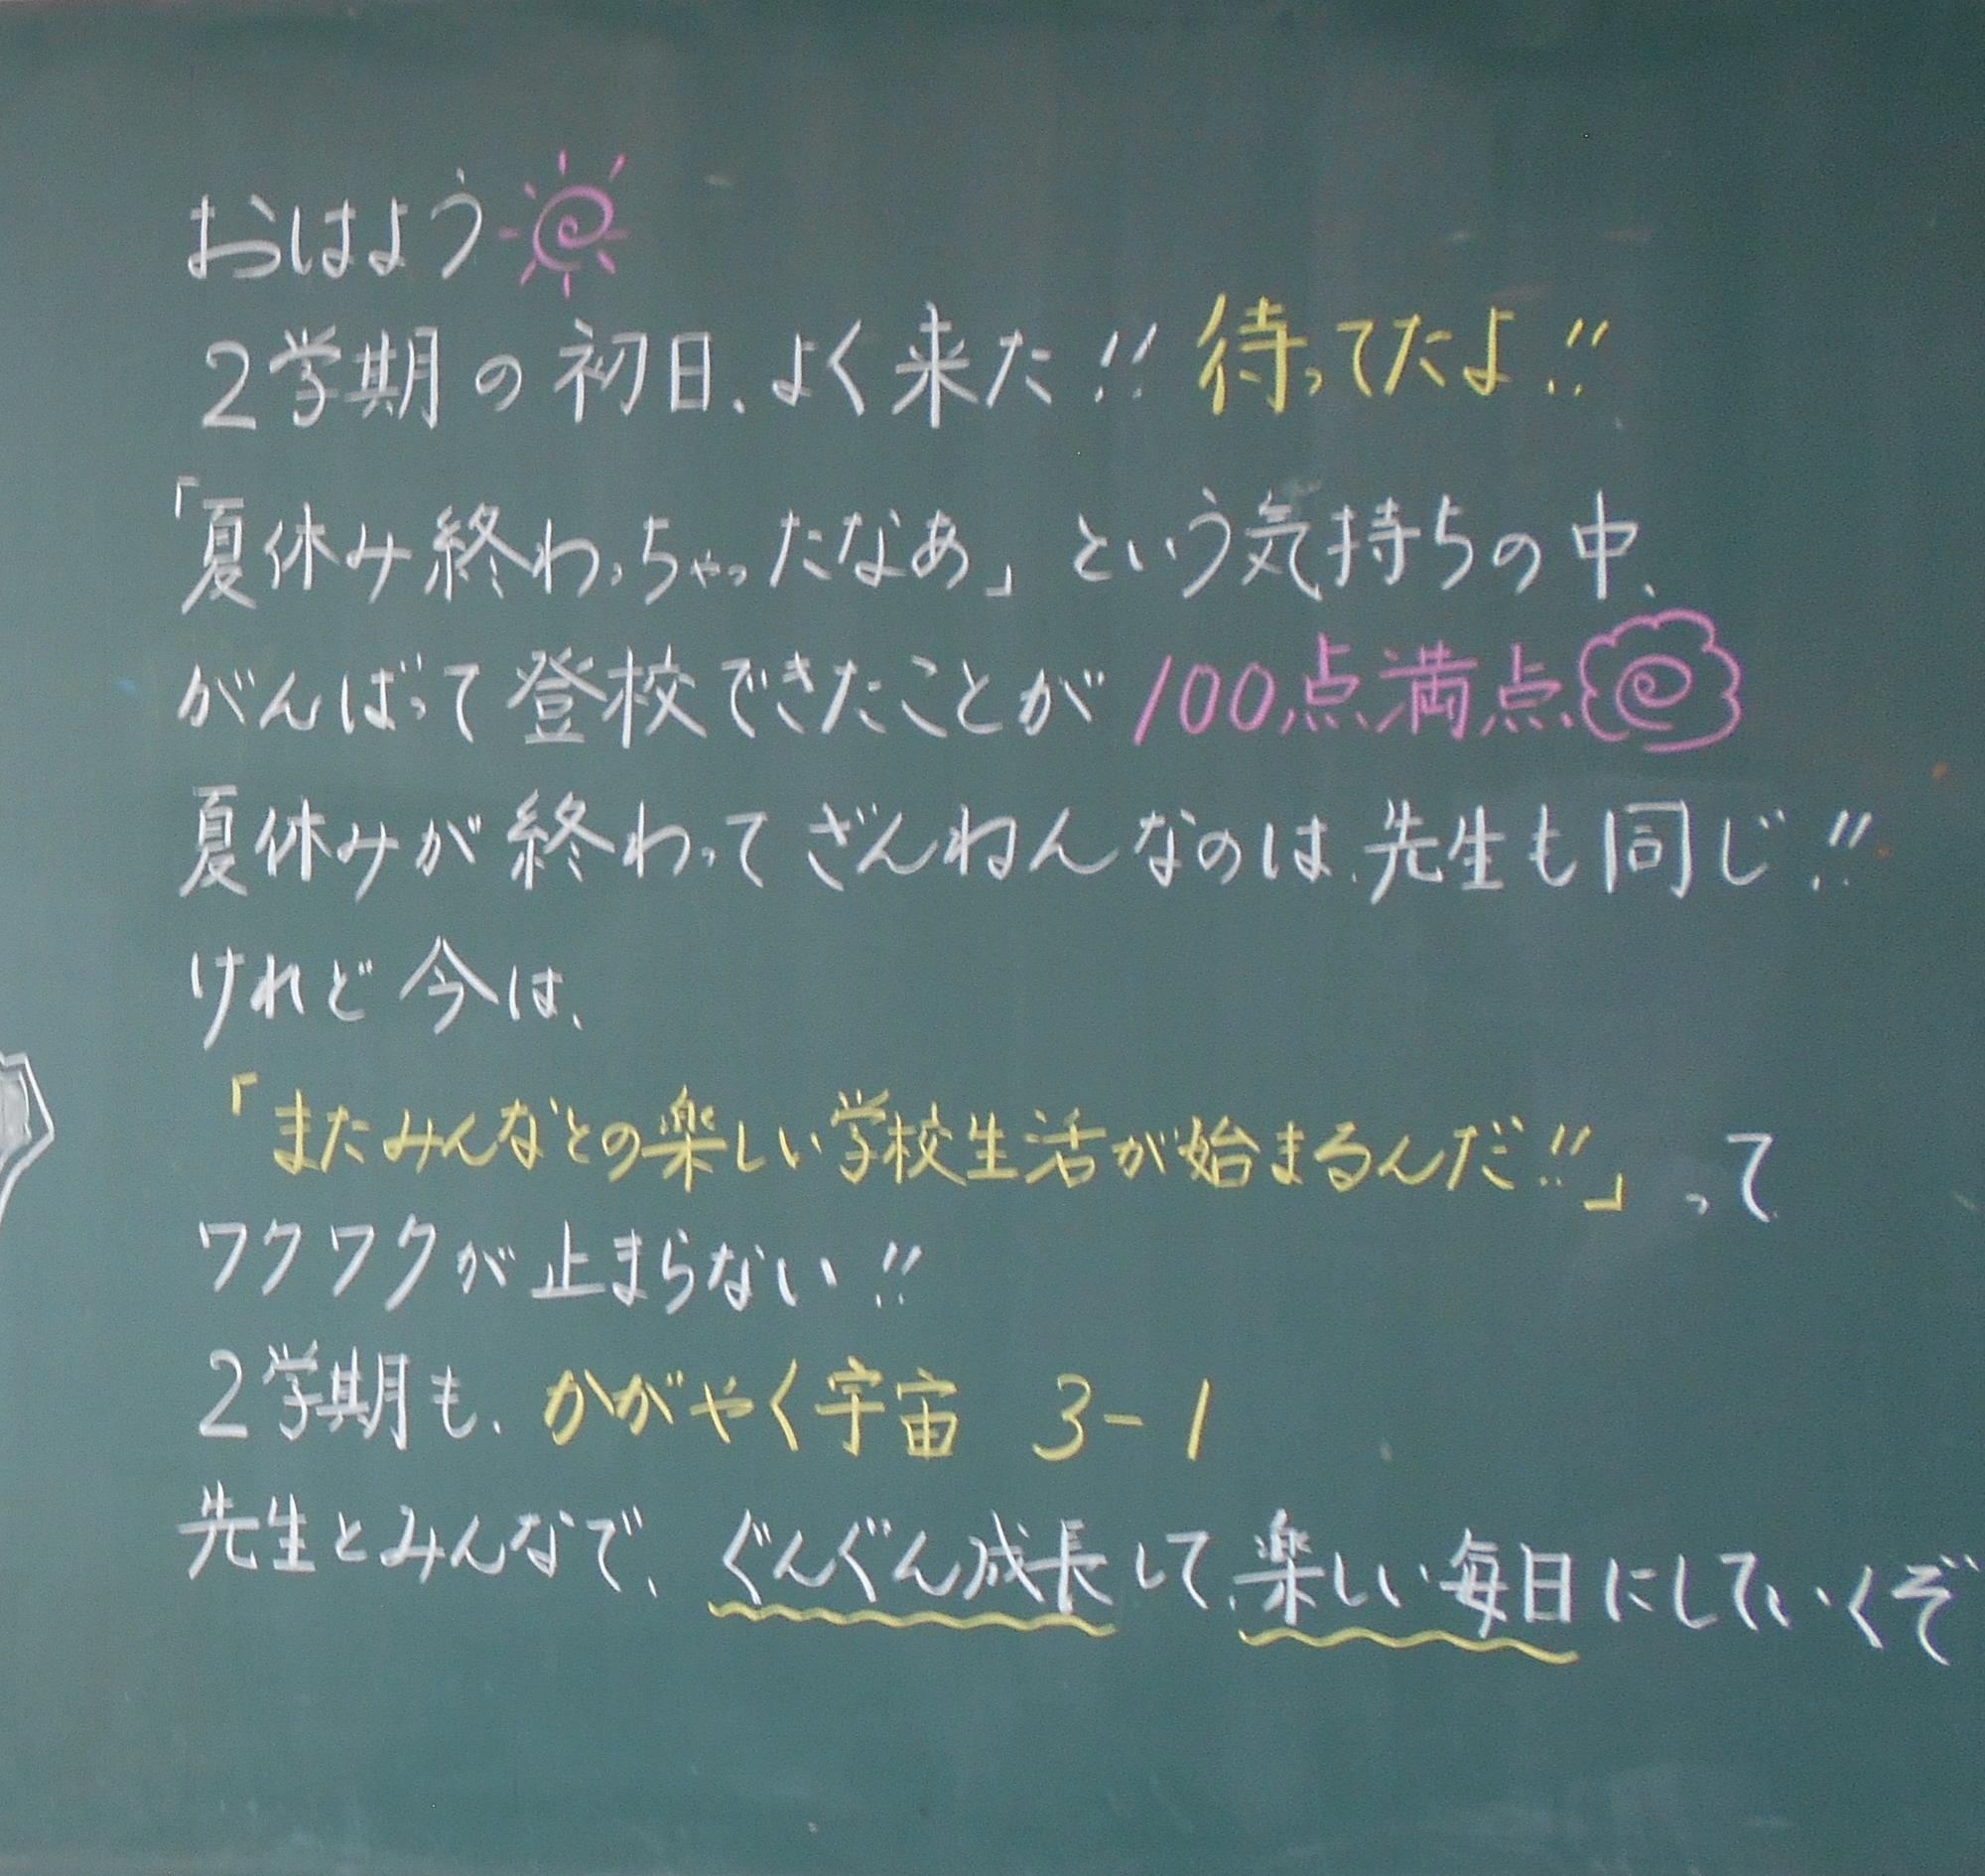 おはよう
2学期の初日、よく来た!! 待ってたよ!!
「夏休み終わっちゃったなあ」という気持ちの中、
がんばって登校できたことが100点満点
夏休みが終わってざんねんなのは、先生も同じ!!
けれど今は、
「またみんなとの楽しい学校生活が始まるんだ!!」って
ワクワクが止まらない!!
2学期も、かがやく宇宙 3-1
先生とみんなで、ぐんぐん成長して、楽しい毎日にしていくぞ